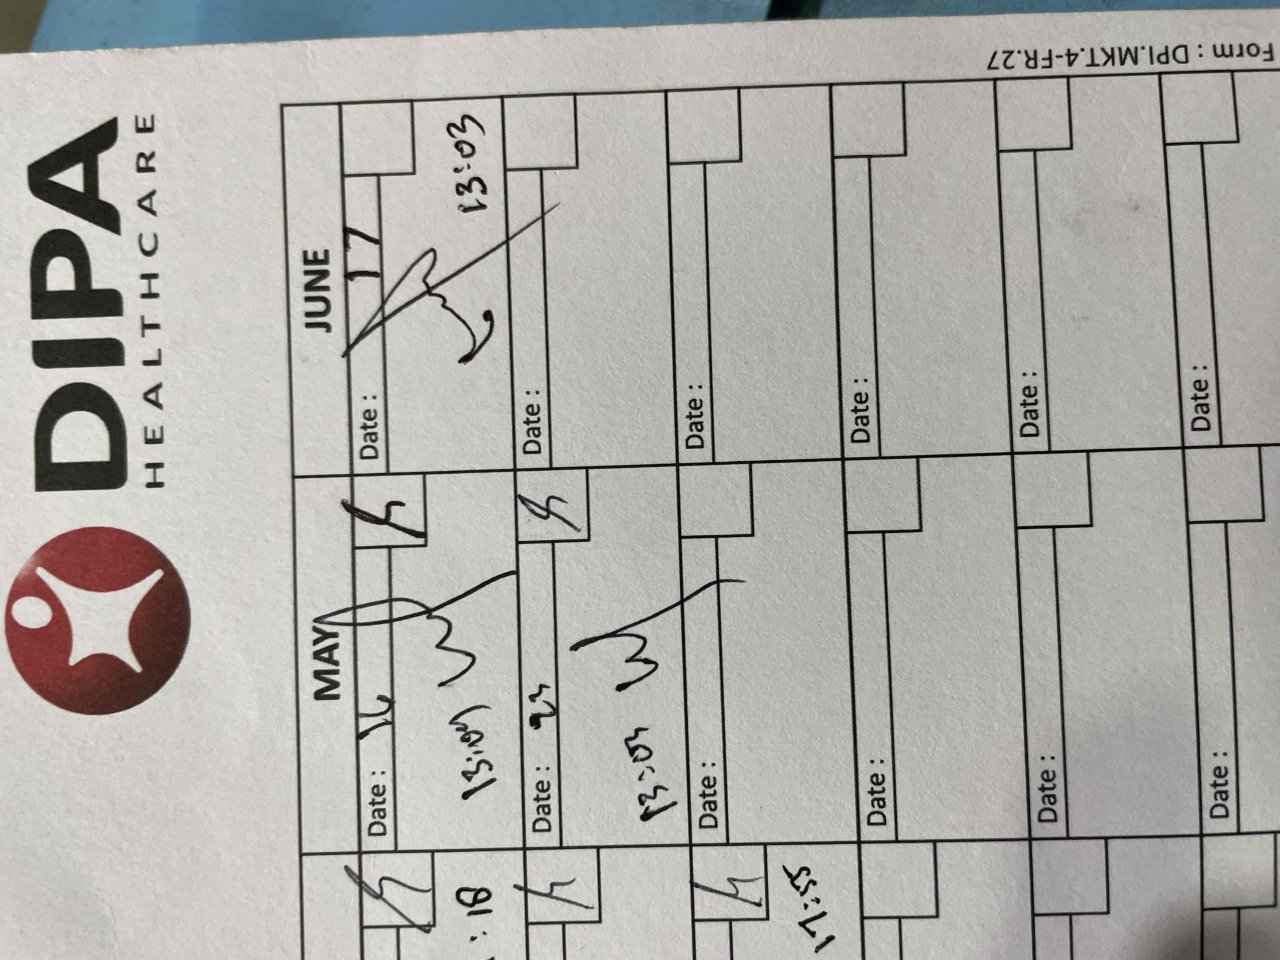 DIPA
HEALTHCARE
Form : DPI.MKT.4-FR.27
MAY
JUNE
Date : 16
Date : 17
13:03
Date : 23
Date :
Date :
Date :
Date :
Date :
Date :
Date :
Date :
Date :
: 18
17:55